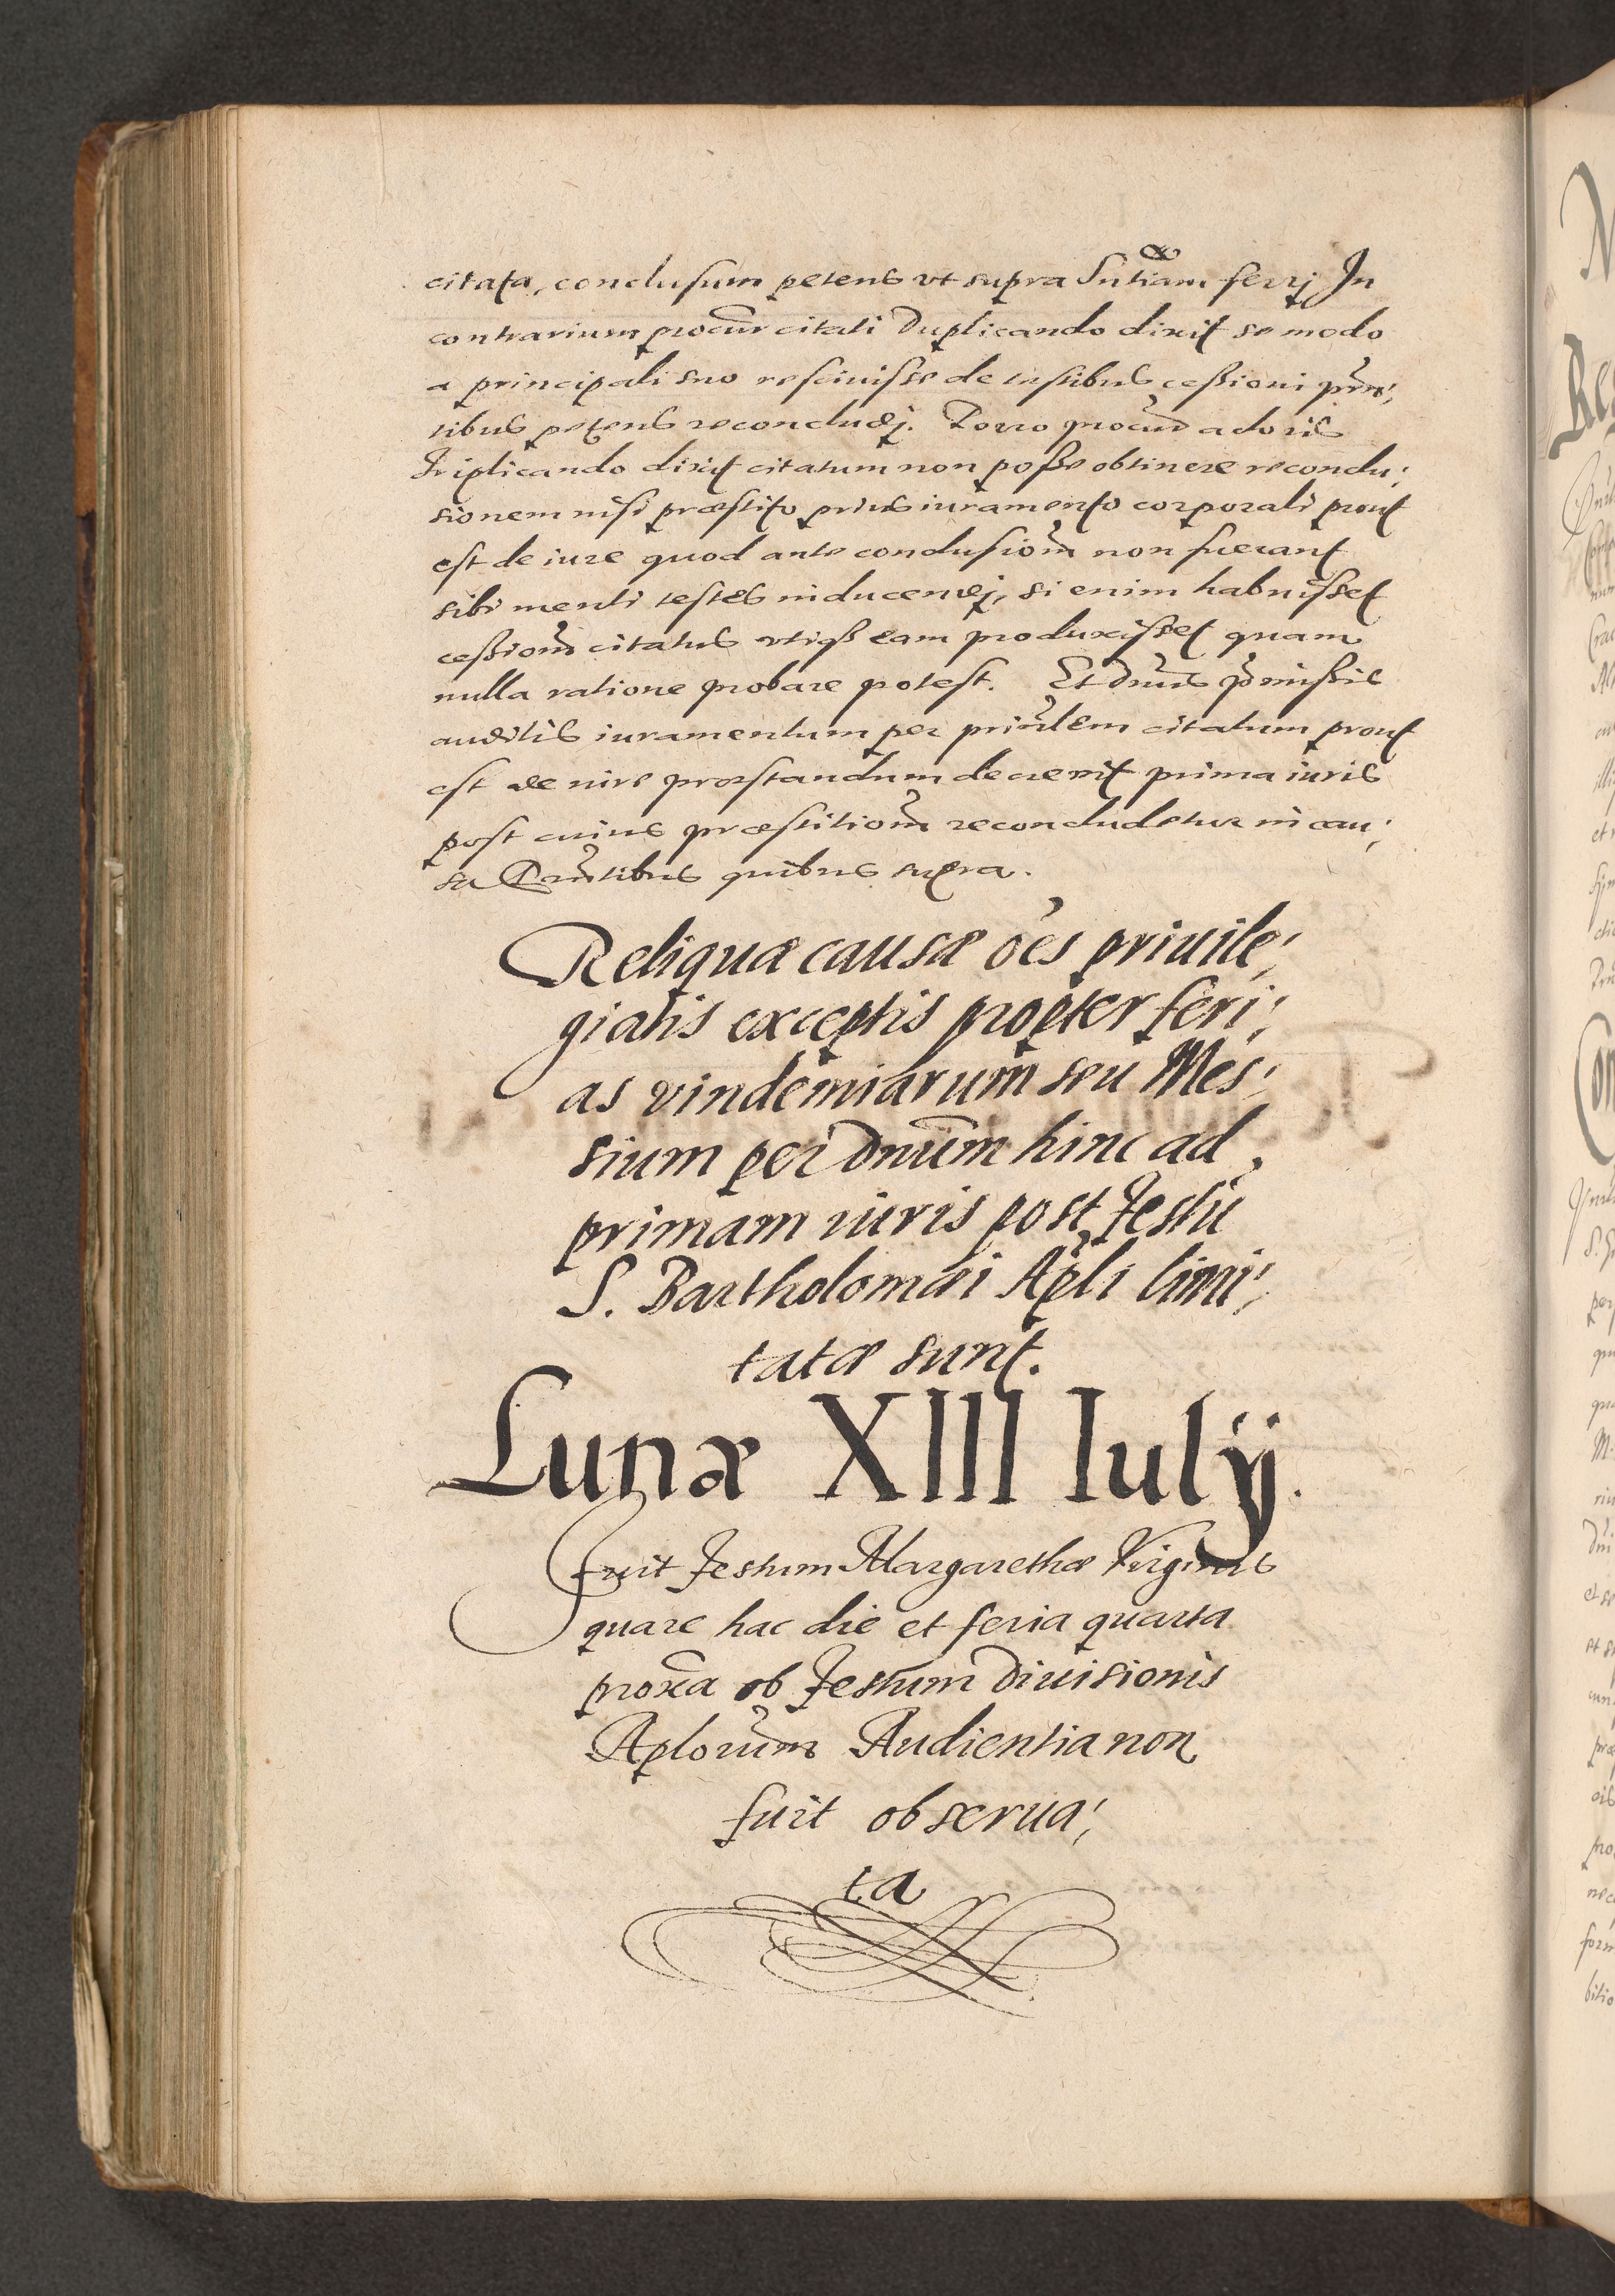 citata, conclusum petens vt supra Sntiam ferrj In
contrarium procur citati Duplicando dixit se modo
a principali suo resciuisse de testibus cessioni pnn:
tibus petens reconcludj. Porro procur actoris
Triplicando dixit citatum non posse obtinere reconclu:
sionem nisi præstito prius iuramento corporali prout
est de iure quod ante conclusiom non fuerant
sibi menti testes inducendj, si enim habuisset
cessiom citatus vtiqs eam produxisset quam
nulla ratione probare potest. Et Dnus præmissis
auditis iuramentum per prinlem citatum prout
est de iure præstandum decreuit prima iuris
post cuius præstitiom reconcludetur in cau:
sa Pntibus quibus supra.
Reliquæ causæ oes priuile:
giatis exceptis propter feri:
as vindemiarum seu Mes:
sium per Dnum hinc ad
primam iuris post Festu
S. Bartholomæi Apli limi:
tatæ sunt.
Lunæ XIII Iulÿ.
Fuit Festum Margarethæ Virginis
quare hac die et feria quarta
proxa ob Festum Diuisionis
Aplorum Audientia non
fuit obserua:
ta